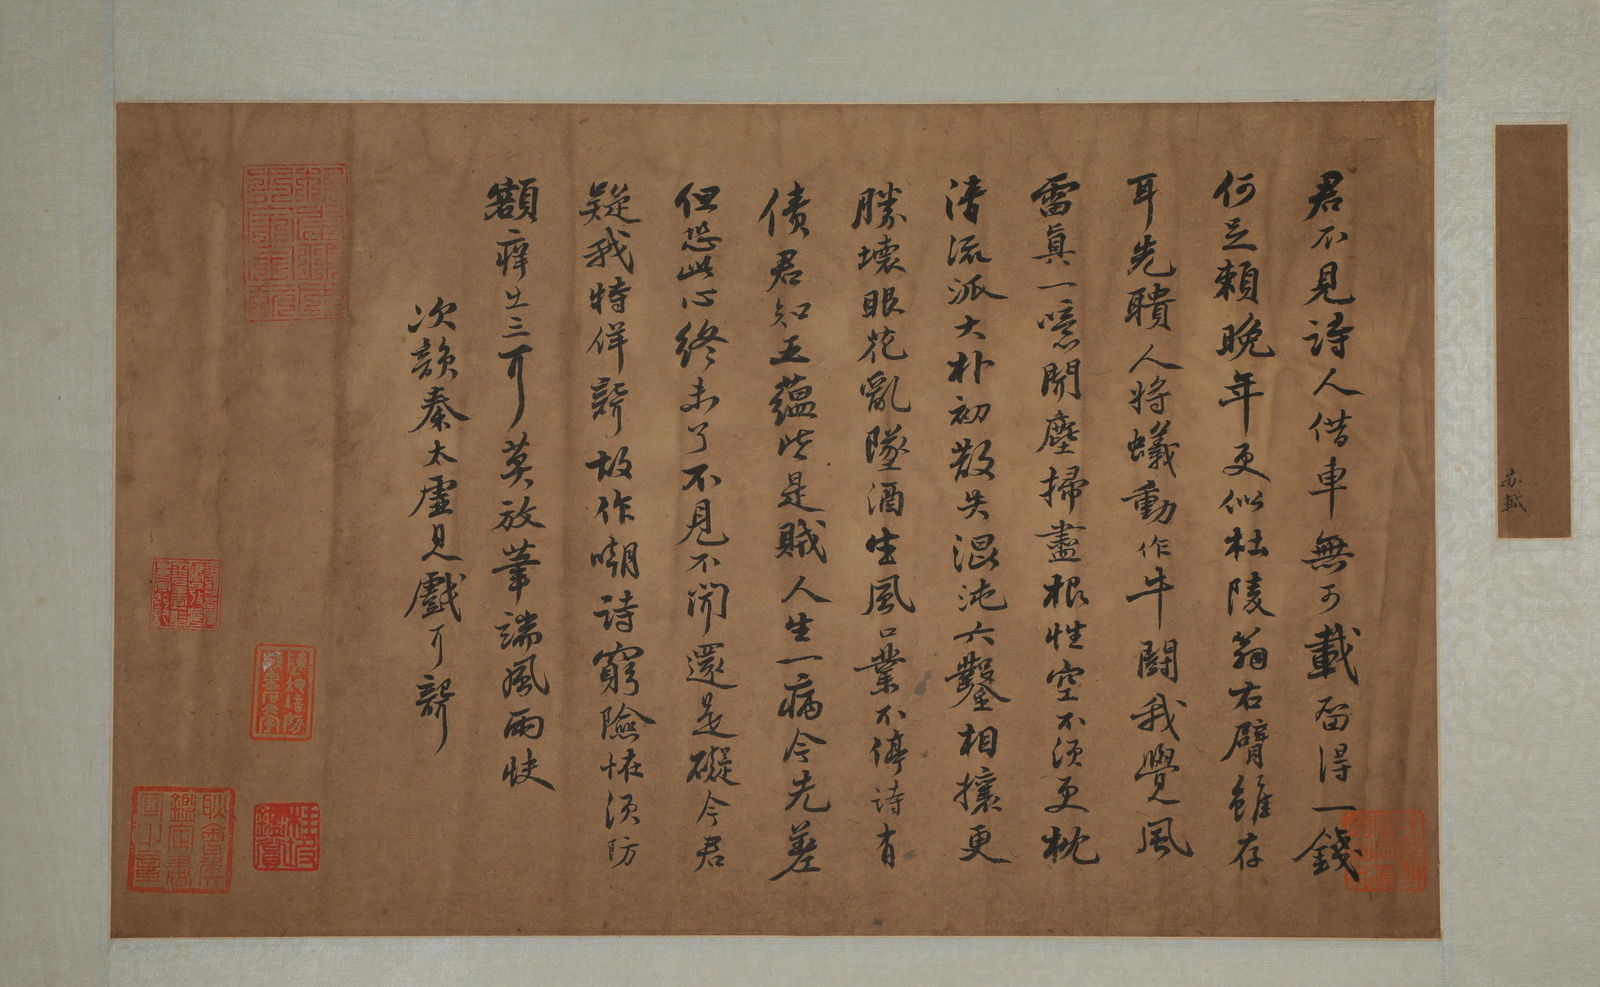 君不見詩人借車無可載留得一錢
何足賴晚年更似杜陵翁右臂雖存
耳先聵人將蟻動作牛鬪我覺風
雷真一噫聞塵掃盡根性空不須更枕
清流派大朴初散失混沌六鑿相攘更
勝壞眼花亂墜酒生風口業不停詩有
債君知五蘊皆是賊人生一病今先差
但恐此心終未了不見不聞還是礙今君
疑我特佯聾故作嘲詩窮險怪須防
額癢出三耳莫放筆端風雨快
次韻秦太虛見戲耳聾
蘇軾